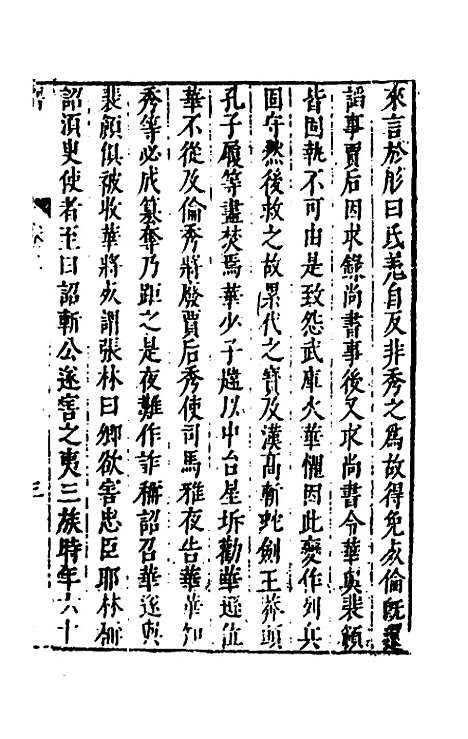 來言於肜曰氐羌自反非秀之爲故得免死倫旣還
諂事賈后因求錄尚書事後又求尚書令華與裴頠
皆固執不可由是致怨武庫火華懼因此變作列兵
固守然後救之故累代之寶及漢高斬蛇劍王莽頭
孔子履等盡焚焉華少子韙以中台星坼勸華遜位
華不從及倫秀將廢賈后秀使司馬雅夜告華華知
秀等必成簒奪乃距之是夜難作詐稱詔召華遂與
裴頠俱被收華將死謂張林曰卿欲害忠臣耶林稱
詔須臾使者至曰詔斬公遂害之夷三族時年六十
三